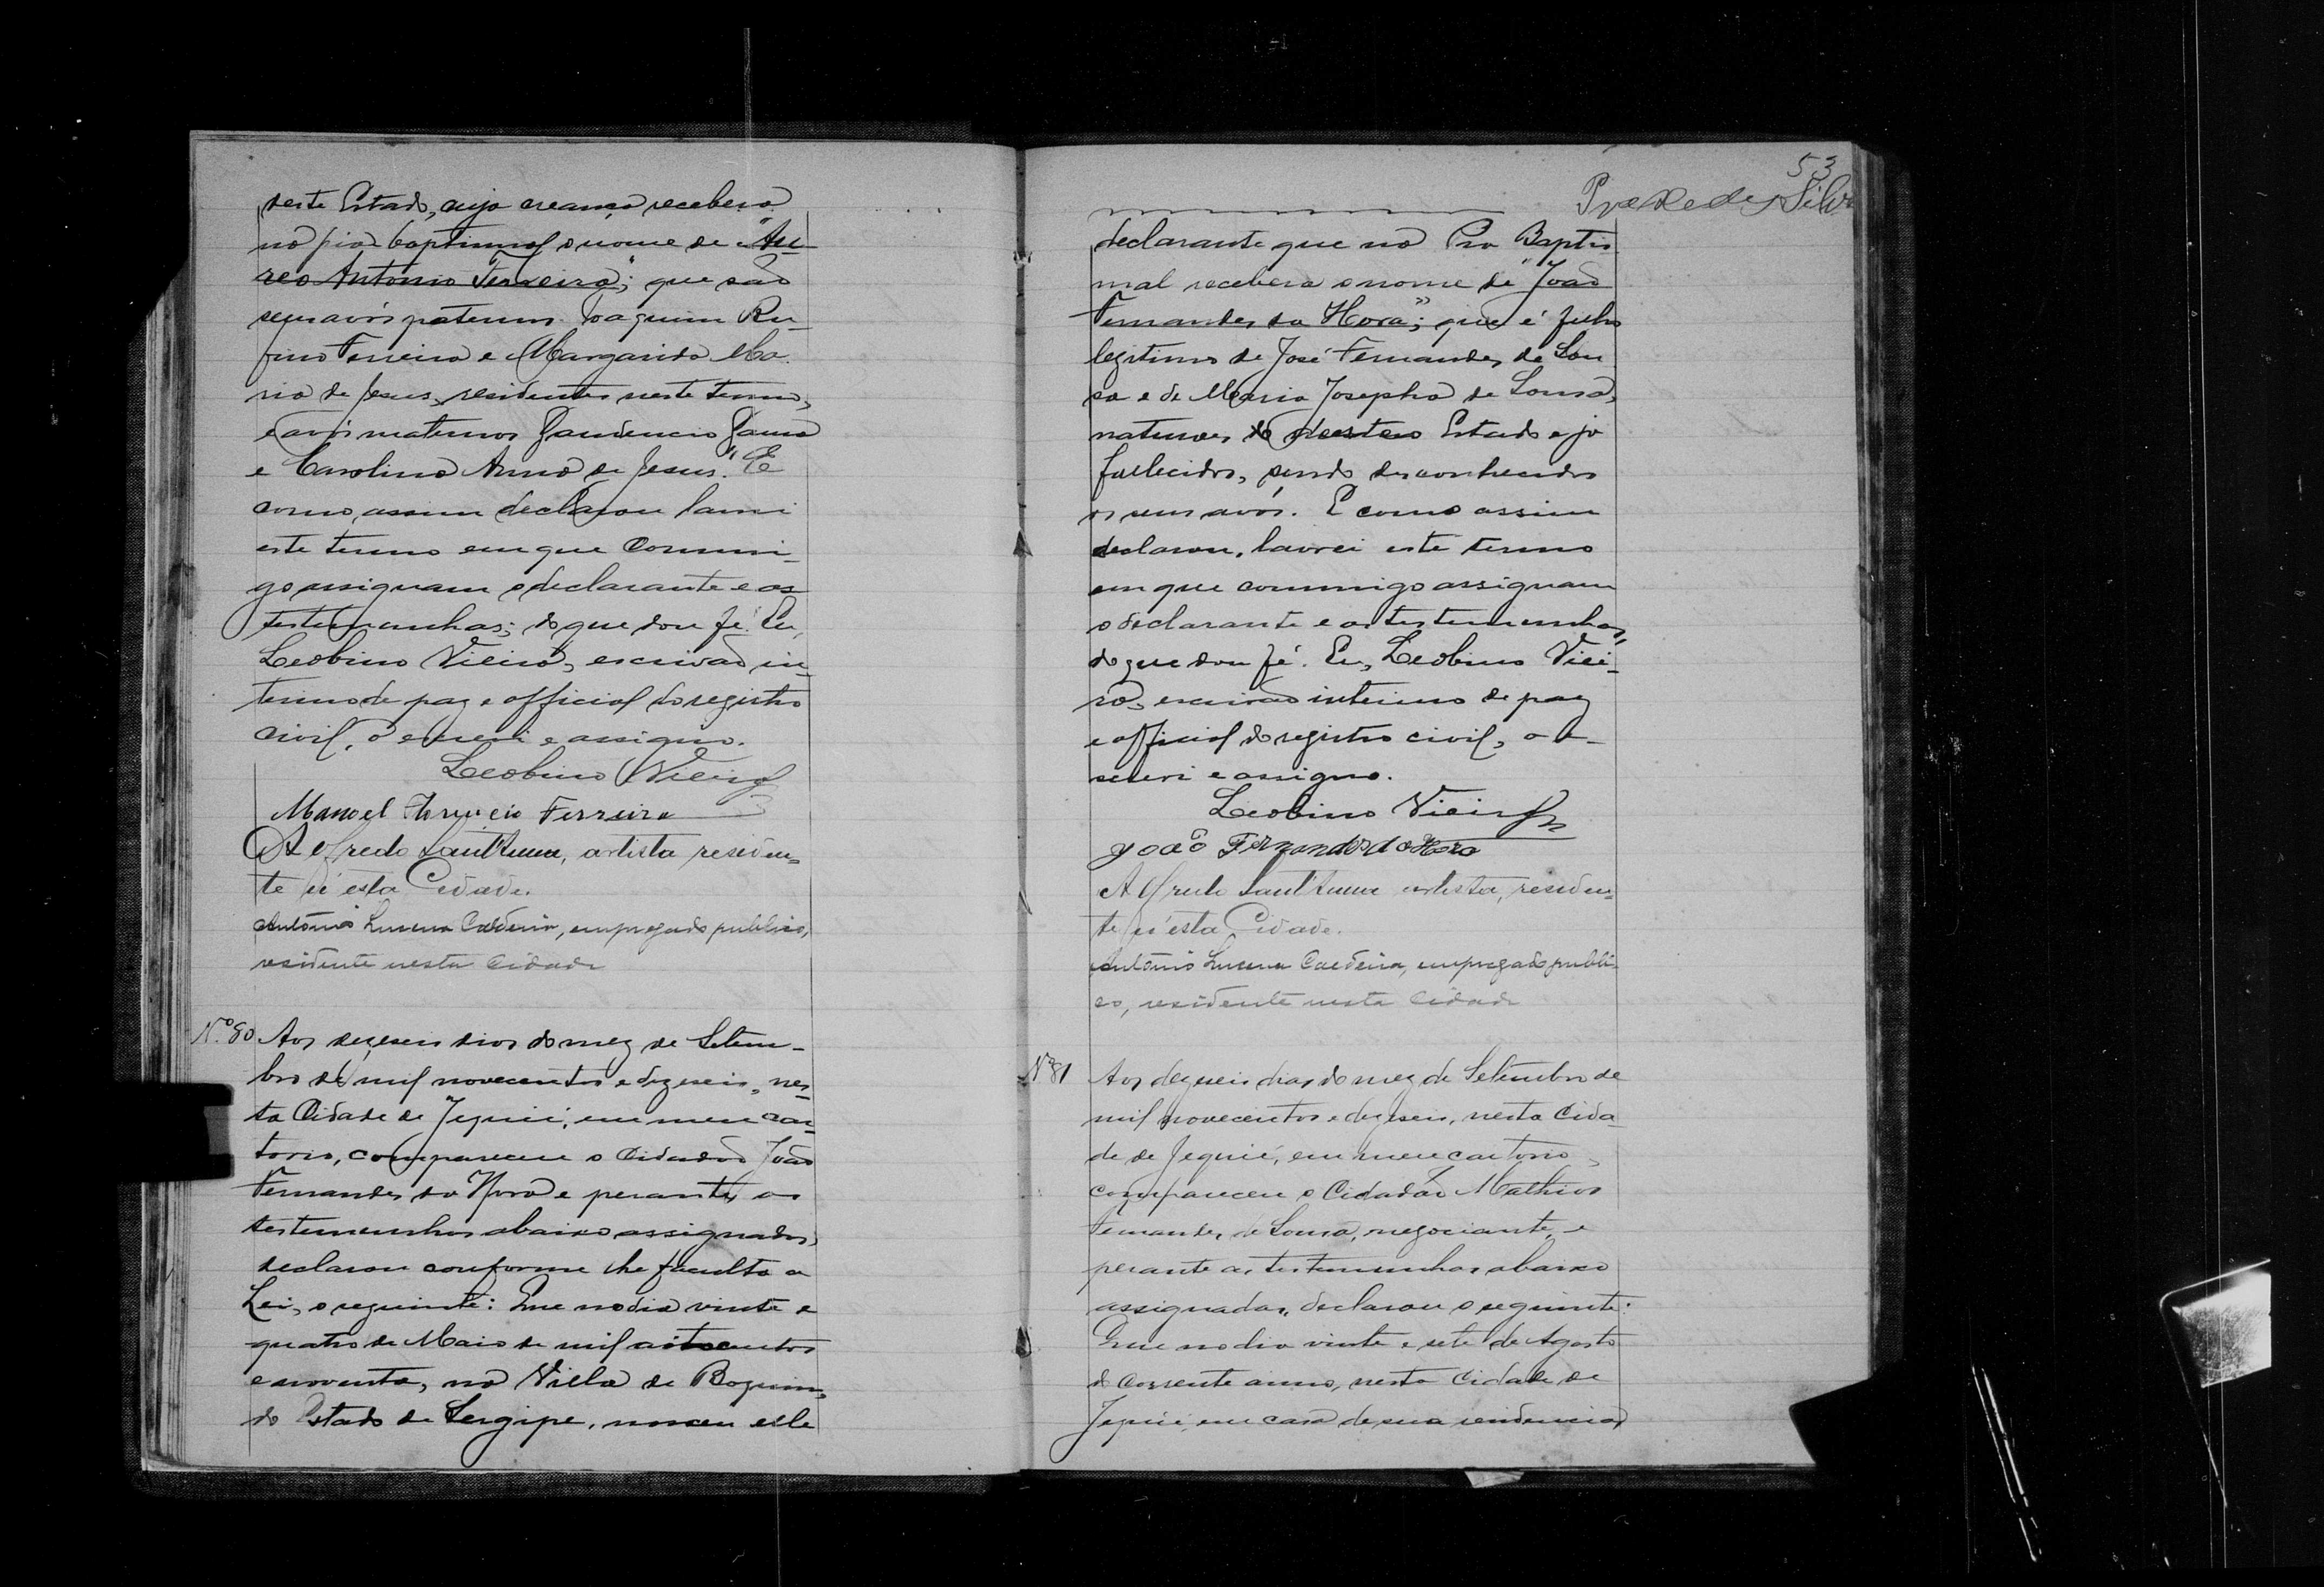 deste Estado, cuja creança receberá
na pia baptismal o nome de "Au-
reo Antonio Ferreira"; que são
seus avós paternos Joaquim Ru-
fino Ferreira e Margarida Ma-
ria de Jesus, residentes neste termo,
e avós maternos Gaudencio Gama
e Carolina Anna de Jesus." E
como assim declarou lavrei
este termo em que commi-
go assignam o declarante e as
testemunhas; do que dou fé. Eu,
Leobino Vieira, escrivão in-
terino de paz e official do registro
civil, o escrevi e assigno.
Leobino Vieira
Manoel Ferreira
Alfredo Sant'Anna, artista residen-
te n'esta Cidade.
Antônio Lucena Caldeira, empregado publico,
residente nesta Cidade
Nº 80 Aos dezeseis dias do mez de Setem-
bro de mil novecentos e dezeseis, nes-
ta Cidade de Jequié, em meu car-
torio, compareceu o Cidadão João
Fernandes da Hora e perante as
testemunhas abaixo assignadas,
declarou conforme lhe faculta a
Lei, o seguinte: Que no dia vinte e
quatro de Maio de mil oitocentos
e noventa, na Villa de Boquim,
do Estado de Sergipe, nasceu elle
53
Silva
declarante que na Pia Baptis-
mal recebera o nome de "João
Fernandes da Hora"; que é filho
legitimo de José Fernandes de Sou
sa e de Maria Josepha de Sousa,
naturaes do Estado e já
fallecidos, sendo desconhecidos
os seus avós. E como assim
declarou, lavrei este termo
em que commigo assignam
o declarante e as testemunhas,
do que dou fé. Eu, Leobino Viei-
ra, escrivão interino de paz
e official do registro civil, o e-
screvi e assigno.
Leobino Vieira
João Fernandes da Hora
Alfredo Sant'Anna artista, residen-
te n'esta Cidade.
Antônio Lucena Caldeira, empregado publi-
co, residente nesta Cidade
Nº 81 Aos dezeseis dias do mez de Setembro de
mil novecentos e dezeseis, nesta Cida
de de Jequié, em meu cartorio,
compareceu o Cidadão Mathias
Fernandes de Sousa, negociante, e
perante as testemunhas abaixo
assignadas, declarou o seguinte:
Que no dia vinte e sete de Agosto
do corrente anno, nesta Cidade de
Jequié, em casa de sua residencia,